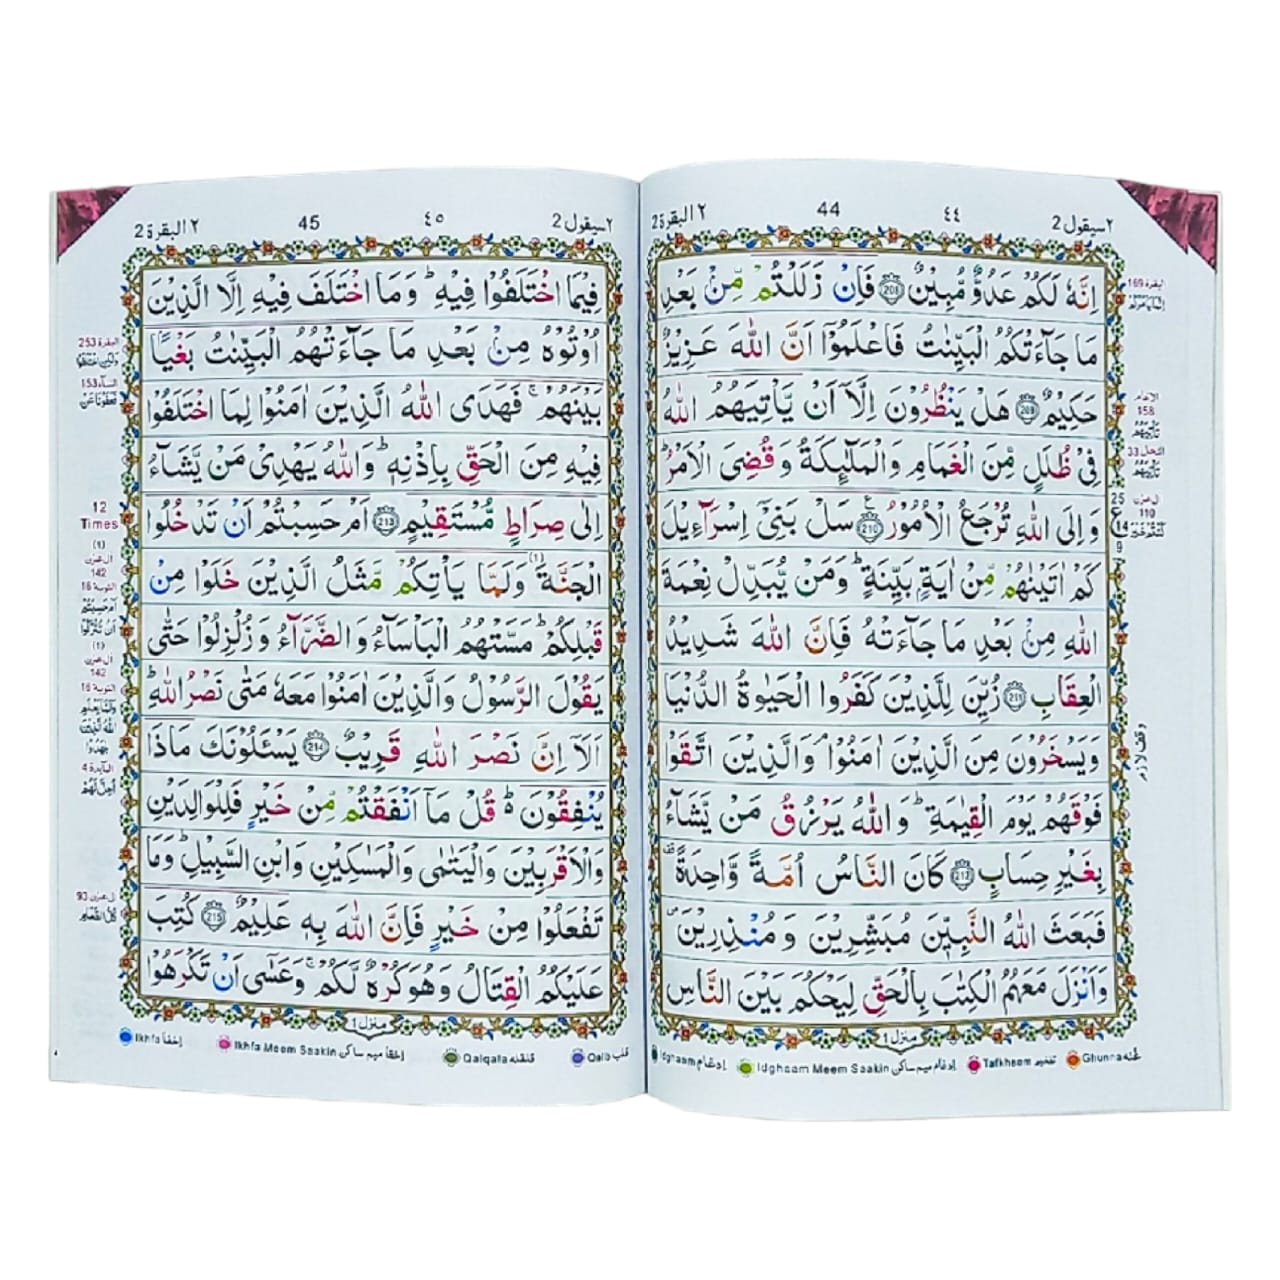 ٢ سيقول 2
٤٤
44
٢ البقرة 2
اِنَّهٗ لَكُمْ عَدُوٌّ مُّبِيْنٌ 208 فَاِنْ زَلَلْتُمْ مِّنْۢ بَعْدِ
مَا جَآءَتْكُمُ الْبَيِّنٰتُ فَاعْلَمُوْۤا اَنَّ اللّٰهَ عَزِيْزٌ
حَكِيْمٌ 209 هَلْ يَنْظُرُوْنَ اِلَّاۤ اَنْ يَّاْتِيَهُمُ اللّٰهُ
فِيْ ظُلَلٍ مِّنَ الْغَمَامِ وَالْمَلٰٓئِكَةُ وَقُضِيَ الْاَمْرُ ؕ
وَاِلَى اللّٰهِ تُرْجَعُ الْاُمُوْرُ 210 سَلْ بَنِيْۤ اِسْرَآءِيْلَ
كَمْ اٰتَيْنٰهُمْ مِّنْ اٰيَةٍۢ بَيِّنَةٍ ؕ وَمَنْ يُّبَدِّلْ نِعْمَةَ
اللّٰهِ مِنْۢ بَعْدِ مَا جَآءَتْهُ فَاِنَّ اللّٰهَ شَدِيْدُ
الْعِقَابِ 211 زُيِّنَ لِلَّذِيْنَ كَفَرُوا الْحَيٰوةُ الدُّنْيَا
وَيَسْخَرُوْنَ مِنَ الَّذِيْنَ اٰمَنُوْا ۘ وَالَّذِيْنَ اتَّقَوْا
فَوْقَهُمْ يَوْمَ الْقِيٰمَةِ ؕ وَاللّٰهُ يَرْزُقُ مَنْ يَّشَآءُ
بِغَيْرِ حِسَابٍ 212 كَانَ النَّاسُ اُمَّةً وَّاحِدَةً ۟
فَبَعَثَ اللّٰهُ النَّبِيّٖنَ مُبَشِّرِيْنَ وَمُنْذِرِيْنَ ۪
وَاَنْزَلَ مَعَهُمُ الْكِتٰبَ بِالْحَقِّ لِيَحْكُمَ بَيْنَ النَّاسِ
منزل 1
البقرة 169
الانعام
158
النحل 33
ال عمرٰن
110
25
ع
14
9
وقف لازم
Idghaam ادغام
Idghaam Meem Saakin ادغام ميم ساكن
Tafkheem تفخيم
Ghunna غنه
٢ سيقول 2
٤٥
45
٢ البقرة 2
فِيْمَا اخْتَلَفُوْا فِيْهِ ؕ وَمَا اخْتَلَفَ فِيْهِ اِلَّا الَّذِيْنَ
اُوْتُوْهُ مِنْۢ بَعْدِ مَا جَآءَتْهُمُ الْبَيِّنٰتُ بَغْيًاۢ
بَيْنَهُمْ ۚ فَهَدَى اللّٰهُ الَّذِيْنَ اٰمَنُوْا لِمَا اخْتَلَفُوْا
فِيْهِ مِنَ الْحَقِّ بِاِذْنِهٖ ؕ وَاللّٰهُ يَهْدِيْ مَنْ يَّشَآءُ
اِلٰى صِرَاطٍ مُّسْتَقِيْمٍ 213 اَمْ حَسِبْتُمْ اَنْ تَدْخُلُوا
الْجَنَّةَ (1) وَلَمَّا يَاْتِكُمْ مَّثَلُ الَّذِيْنَ خَلَوْا مِنْ
قَبْلِكُمْ ؕ مَسَّتْهُمُ الْبَاْسَآءُ وَالضَّرَّآءُ وَزُلْزِلُوْا حَتّٰى
يَقُوْلَ الرَّسُوْلُ وَالَّذِيْنَ اٰمَنُوْا مَعَهٗ مَتٰى نَصْرُ اللّٰهِ ؕ
اَلَاۤ اِنَّ نَصْرَ اللّٰهِ قَرِيْبٌ 214 يَسْـَٔلُوْنَكَ مَاذَا
يُنْفِقُوْنَ ؕ قُلْ مَاۤ اَنْفَقْتُمْ مِّنْ خَيْرٍ فَلِلْوَالِدَيْنِ
وَالْاَقْرَبِيْنَ وَالْيَتٰمٰى وَالْمَسٰكِيْنِ وَابْنِ السَّبِيْلِ ؕ وَمَا
تَفْعَلُوْا مِنْ خَيْرٍ فَاِنَّ اللّٰهَ بِهٖ عَلِيْمٌ 215 كُتِبَ
عَلَيْكُمُ الْقِتَالُ وَهُوَ كُرْهٌ لَّكُمْ ۚ وَعَسٰۤى اَنْ تَكْرَهُوْا
منزل 1
البقرة 253
النسآء 153
12
Times
(1)
ال عمرٰن
142
التوبة 16
اَمْ حَسِبْتُمْ
اَنْ تُتْرَكُوْا
(1)
ال عمرٰن
142
التوبة 16
المآئدة 4
اُحِلَّ لَهُمْ
ال عمرٰن 93
كُلُّ الطَّعَامِ
Ikhfa اخفا
Ikhfa Meem Saakin اخفا ميم ساكن
Qalqala قلقله
Qalb قلب